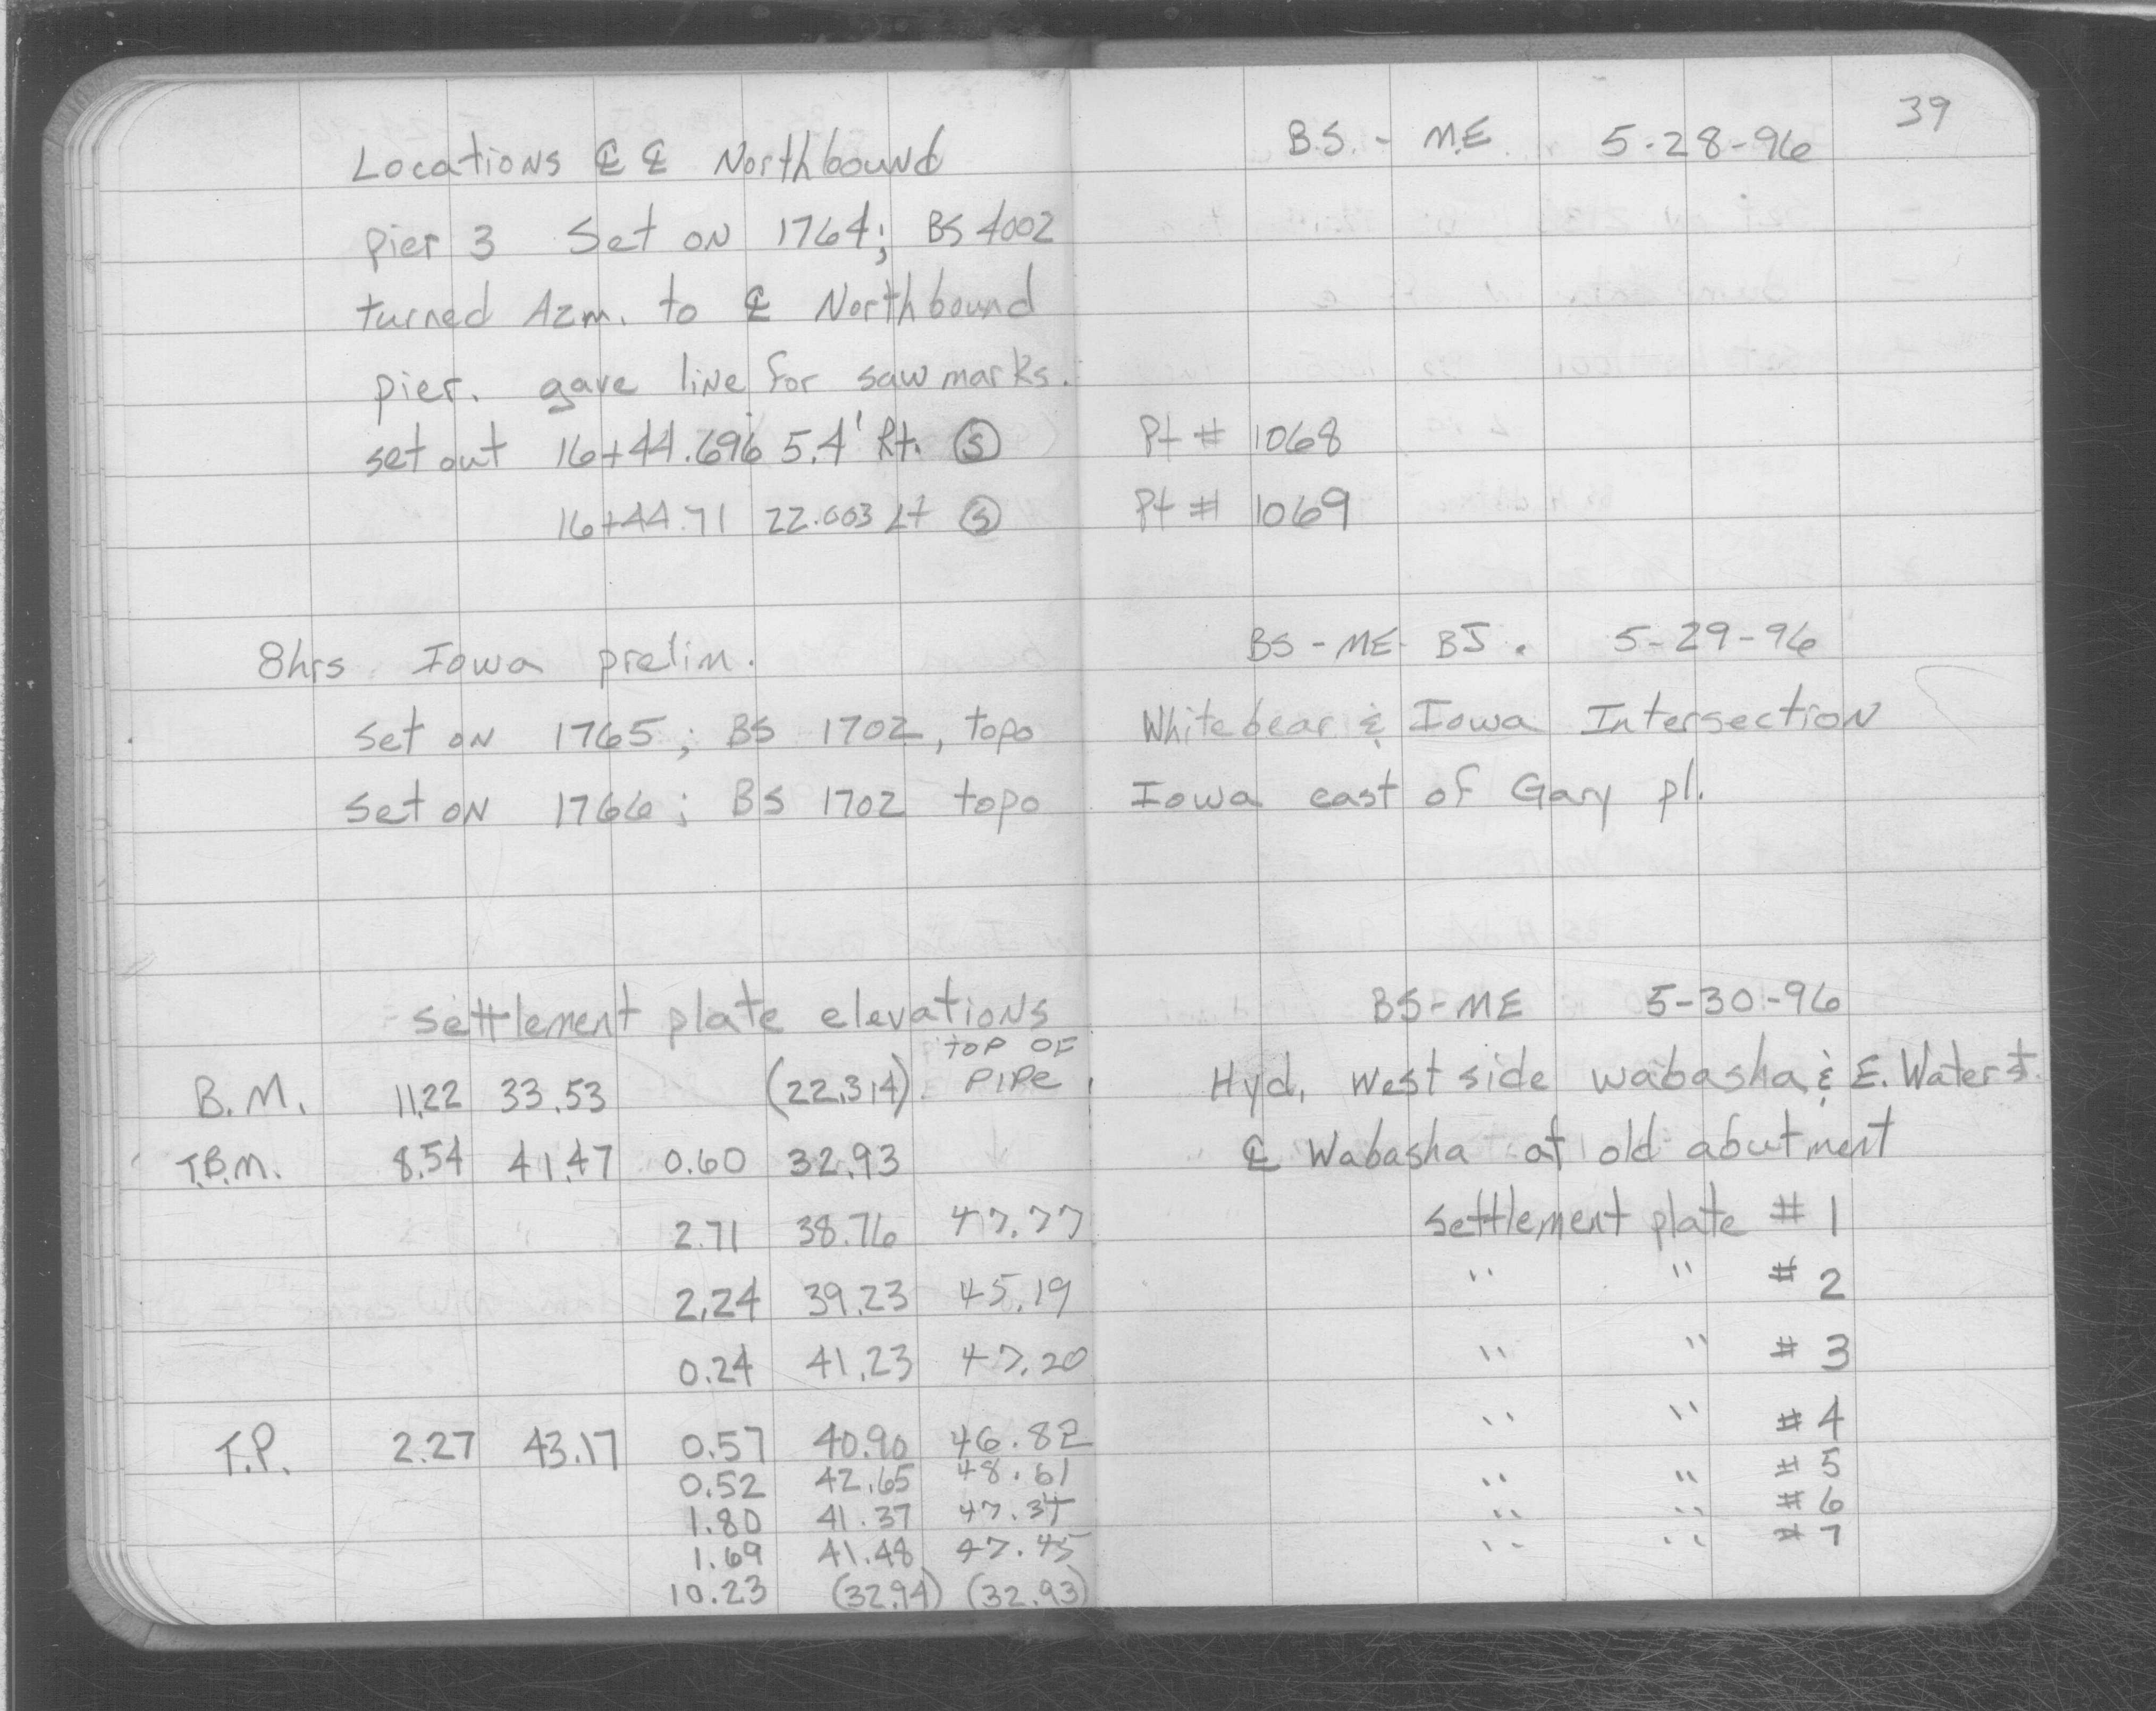 39
Locations ℄ ℄ Northbound B.S. - M.E 5-28-96
pier 3 Set ON 1764; BS 4002
turned Azm. to ℄ Northbound
pier. gave line for saw marks.
set out 16+44.696 5.4' Rt. Ⓢ Pt # 1068
16+44.71 22.003 Lt Ⓢ Pt # 1069
8hrs Iowa prelim. BS - ME - BJ. 5-29-96
set ON 1765; BS 1702, topo Whitebear & Iowa Intersection
set ON 1766; BS 1702 topo Iowa east of Gary pl.
settlement plate elevations BS-ME 5-30-96
TOP OF
B.M. 11.22 33.53 (22.314) PIPe Hyd. West side wabasha & E. Water st.
T.B.M. 8.54 41.47 0.60 32.93 ℄ Wabasha at old abutment
2.71 38.76 47.77 settlement plate # 1
2.24 39.23 45.19 " " # 2
0.24 41.23 47.20 " " # 3
T.P. 2.27 43.17 0.57 40.90 46.82 " " # 4
0.52 42.65 48.61 " " # 5
1.80 41.37 47.34 " " # 6
1.69 41.48 47.45 " " # 7
10.23 (32.94) (32.93)